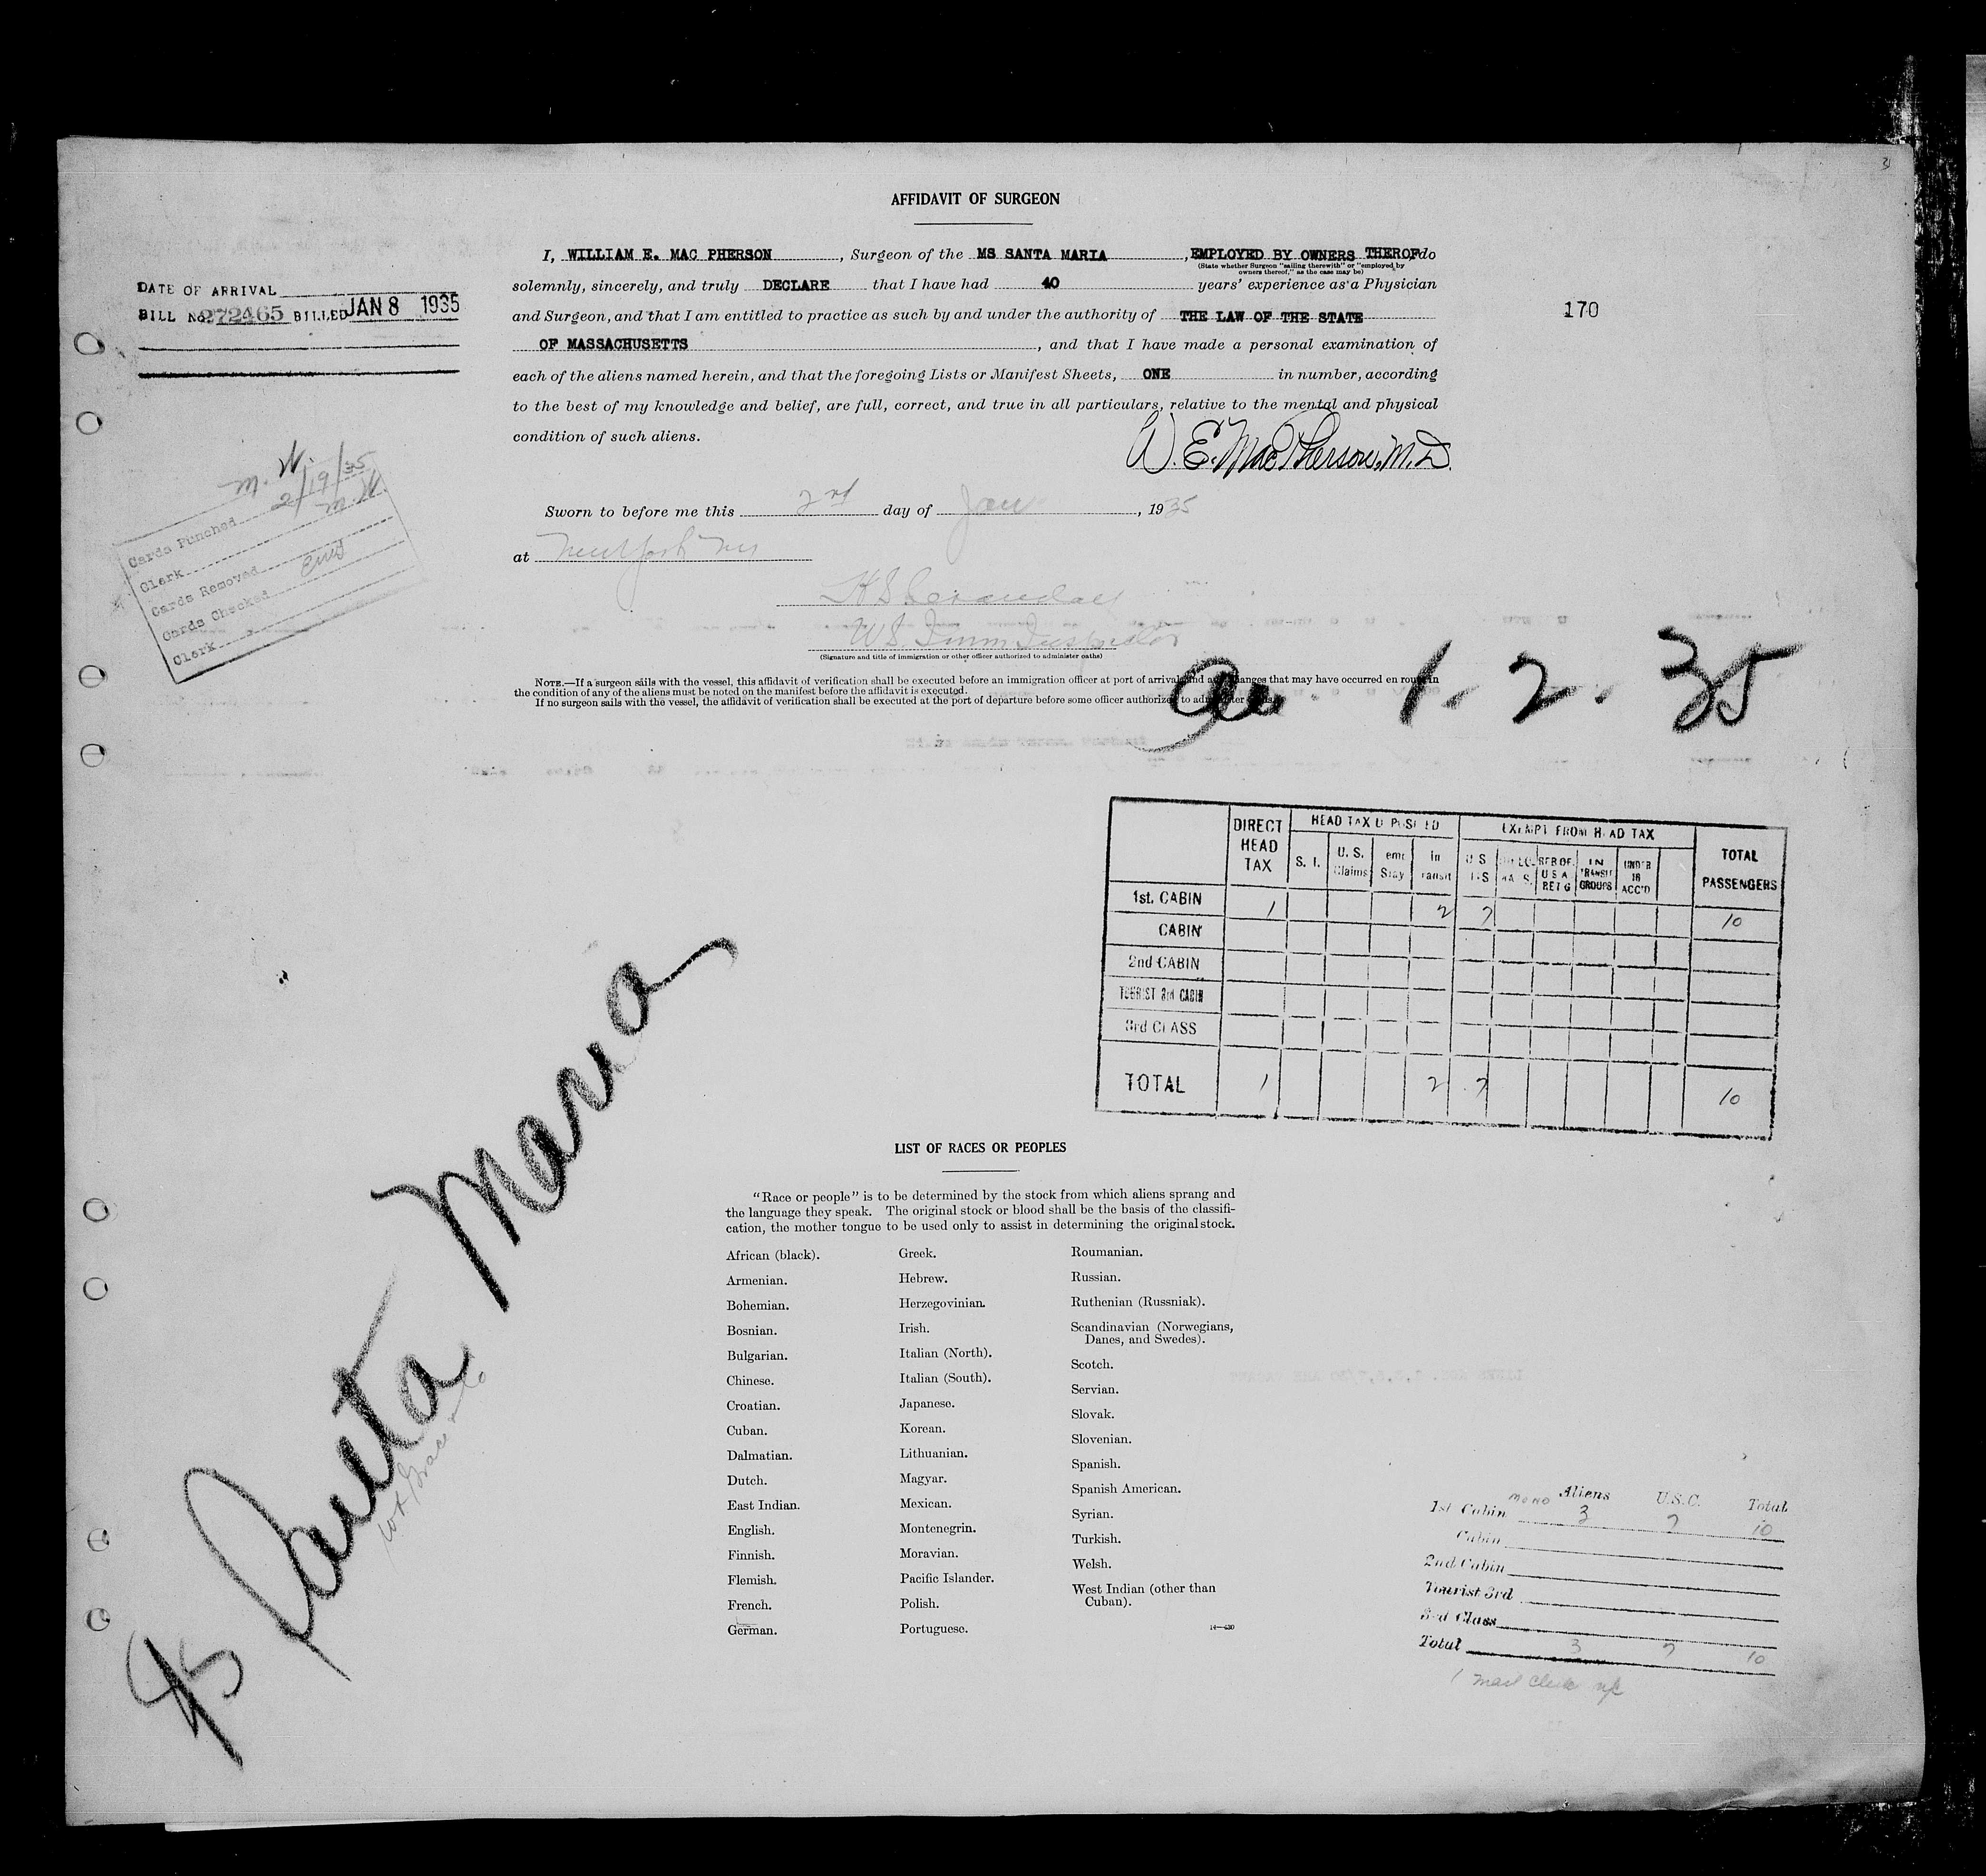 3
AFFIDAVIT OF SURGEON
I, WILLIAM E. MAC PHERSON, Surgeon of the MS SANTA MARIA, EMPLOYED BY OWNERS THEROF do
(State whether Surgeon "sailing therewith" or "employed by
owners thereof," as the case may be)
solemnly, sincerely, and truly DECLARE that I have had 40 years' experience as a Physician
and Surgeon, and that I am entitled to practice as such by and under the authority of THE LAW OF THE STATE
OF MASSACHUSETTS, and that I have made a personal examination of
each of the aliens named herein, and that the foregoing Lists or Manifest Sheets, ONE in number, according
to the best of my knowledge and belief, are full, correct, and true in all particulars, relative to the mental and physical
condition of such aliens.
W. E. MacPherson, M.D.
Sworn to before me this 2nd day of Jan, 1935
at New York NY
US Imm Inspector
(Signature and title of immigration or other officer authorized to administer oaths)
NOTE.—If a surgeon sails with the vessel, this affidavit of verification shall be executed before an immigration officer at port of arrival and any changes that may have occurred en route in
the condition of any of the aliens must be noted on the manifest before the affidavit is executed.
If no surgeon sails with the vessel, the affidavit of verification shall be executed at the port of departure before some officer authorized to administer
DATE OF ARRIVAL
BILL No. 272465 BILLED JAN 8 1935
170
Cards Punched 2/19/35
Clerk
Cards Removed
Cards Checked
Clerk
1. 2. 35
DIRECT HEAD TAX
HEAD TAX DEPOSITED
EXEMPT FROM HEAD TAX
TOTAL PASSENGERS
S. I.
U. S. Claims
Stay
in transit
IN TRANSIT GROUPS
UNDER 16 ACC'D
1st. CABIN 1 2 7 10
CABIN
2nd CABIN
TOURIST 3rd CABIN
3rd CLASS
TOTAL 1 2 7 10
Santa Maria
LIST OF RACES OR PEOPLES
"Race or people" is to be determined by the stock from which aliens sprang and
the language they speak. The original stock or blood shall be the basis of the classifi-
cation, the mother tongue to be used only to assist in determining the original stock.
African (black).
Armenian.
Bohemian.
Bosnian.
Bulgarian.
Chinese.
Croatian.
Cuban.
Dalmatian.
Dutch.
East Indian.
English.
Finnish.
Flemish.
French.
German.
Greek.
Hebrew.
Herzegovinian.
Irish.
Italian (North).
Italian (South).
Japanese.
Korean.
Lithuanian.
Magyar.
Mexican.
Montenegrin.
Moravian.
Pacific Islander.
Polish.
Portuguese.
Roumanian.
Russian.
Ruthenian (Russniak).
Scandinavian (Norwegians,
Danes, and Swedes).
Scotch.
Servian.
Slovak.
Slovenian.
Spanish.
Spanish American.
Syrian.
Turkish.
Welsh.
West Indian (other than
Cuban).
14—430
Aliens U.S.C. Total
1st Cabin 3 7 10
Cabin
2nd Cabin
Tourist 3rd
3rd Class
Total 3 7 10
1 mail clerk